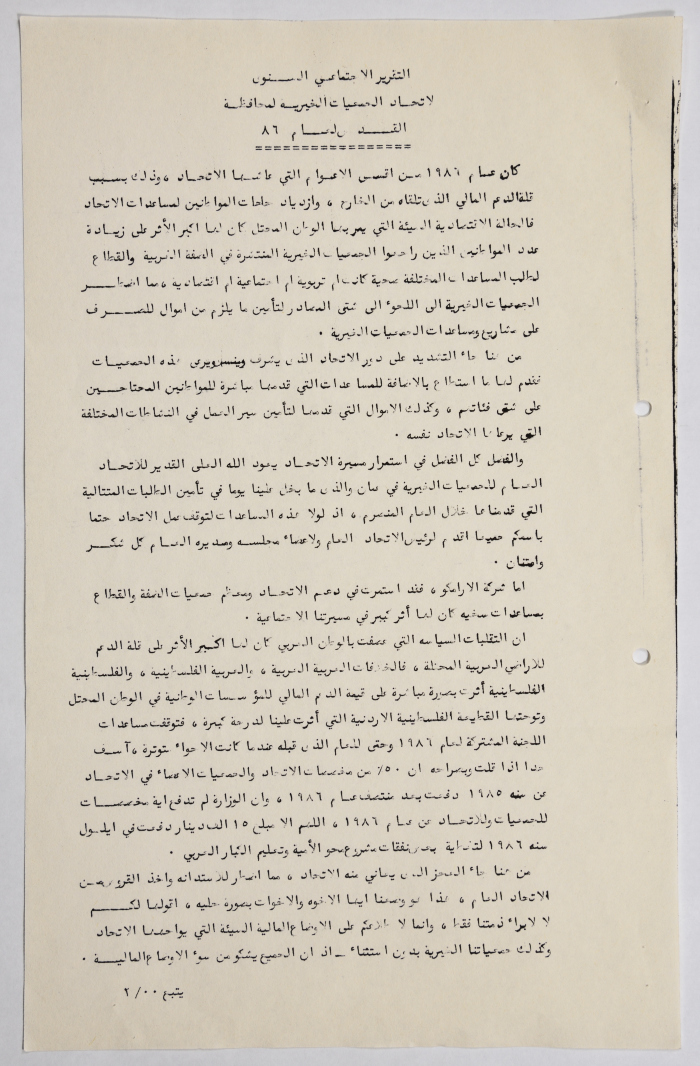 التقرير الاجتماعي السنوي
لاتحاد الجمعيات الخيرية لمحافظة
القدس لعام ٨٦
كان عام ١٩٨٦ من اقسى الاعوام التي عاشها الاتحاد ، وذلك بسبب
قلة الدعم المالي الذي تلقاه من الخارج ، وازدياد حاجات المواطنين لمساعدات الاتحاد
فالحالة الاقتصادية السيئة التي يمر بها الوطن المحتل كان لها اكبر الأثر على زيادة
عدد المواطنين الذين راجعوا الجمعيات الخيرية المنتشرة في الضفة الغربية والقطاع
لطلب المساعدات المختلفة صحية كانت ام تربوية ام اجتماعية ام اقتصادية ، مما اضطر
الجمعيات الخيرية الى اللجوء الى شتى المصادر لتأمين ما يلزم من اموال للصرف
على مشاريع ومساعدات الجمعيات الخيرية .
من هنا جاء التشديد على دور الاتحاد الذي يشرف وينسق ويرعى هذه الجمعيات
فقدم لها ما استطاع بالاضافة للمساعدات التي قدمها مباشرة للمواطنين المحتاجين
على شتى فئاتهم ، وكذلك الاموال التي قدمها لتأمين سير العمل في النشاطات المختلفة
التي يرعاها الاتحاد نفسه .
والفضل كل الفضل في استمرار مسيرة الاتحاد يعود الله العلى القدير للاتحاد
العام للجمعيات الخيرية في عمان والذي ما بخل علينا يوما في تأمين الطلبات المتتالية
التي قدمناها خلال العام المنصرم ، اذ لولا هذه المساعدات لتوقف عمل الاتحاد حتما
باسمكم جميعا اقدم لرئيس الاتحاد العام ولاعضاء مجلسه ومديره العام كل شكر
وامتنان .
اما شركة الارامكو ، فقد استمرت في دعم الاتحاد ومعظم جمعيات الضفة والقطاع
بمساعدات سخيه كان لها أثر كبير في مسيرتنا الاجتماعية .
ان التقلبات السياسه التي عصفت بالوطن العربي كان لها اكبر الأثر على قلة الدعم
للاراضي العربية المحتلة ، فالخلافات العربية العربية ، والعربية الفلسطينية ، والفلسطينية
الفلسطينية أثرت بصورة مباشرة على قيمة الدعم المالي للمؤسسات الوطنية في الوطن المحتل
وتوجتها القطيعة الفلسطينية الاردنية التي أثرت علينا لدرجة كبيرة ، فتوقفت مساعدات
اللجنة المشتركة لعام ١٩٨٦ وحتى للعام الذي قبله عندما كانت الاجواء متوترة ، آسف
جدا اذا قلت وبصراحه ان ٥٠٪ من مخصصات الاتحاد والجمعيات الاعضاء في الاتحاد
عن سنه ١٩٨٥ دفعت بعد منتصف عام ١٩٨٦ ، وان الوزارة لم تدفع اية مخصصات
للجمعيات وللاتحاد عن عام ١٩٨٦ ، اللهم الا مبلغ ١٥ الف دينار دفعت في ايلول
سنه ١٩٨٦ لتغطية بعض نفقات مشروع محو الأمية وتعليم الكبار العربي .
من هنا جاء العجز الذي يعاني منه الاتحاد ، مما اضطر للاستدانه واخذ القروض من
الاتحاد العام ، هذا هو وضعنا ايها الاخوه والاخوات بصورة جليه ، اقولها لكم
لا لابراء ذمتنا فقط ، وانما لاطلاعكم على الاوضاع المالية السيئة التي يواجهها الاتحاد
وكذلك جمعياتنا الخيرية بدون استثناء ــ اذ ان الجميع يشكو من سوء الاوضاع المالية .
يتبع ٢/٠٠